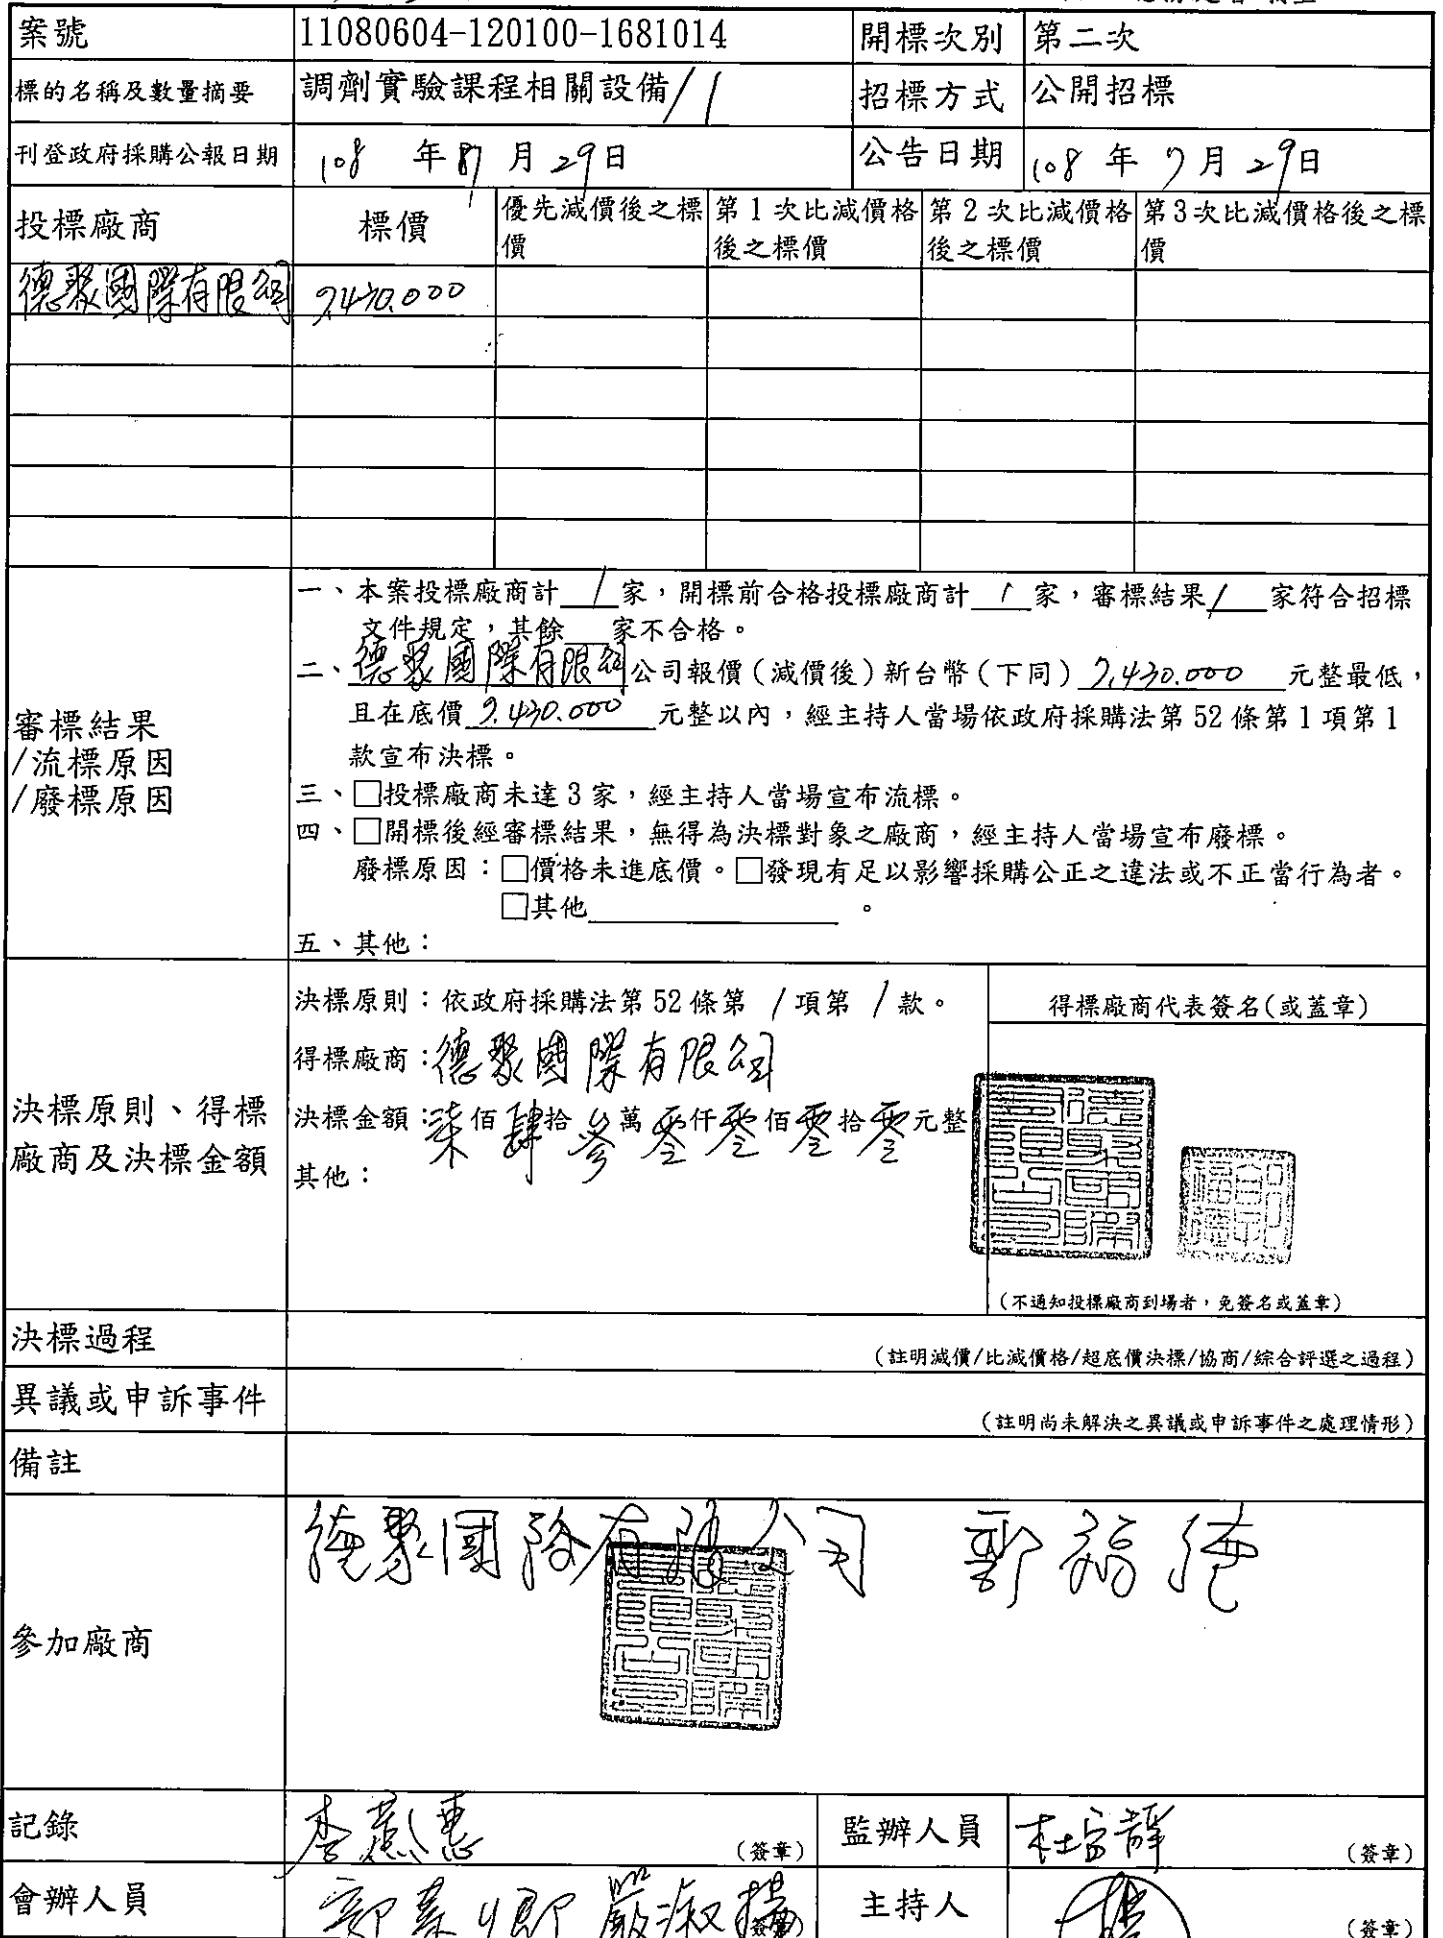 案號 11080604-120100-1681014 開標次別 第二次
標的名稱及數量摘要 調劑實驗課程相關設備/1 招標方式 公開招標
刊登政府採購公報日期 108 年 7 月 29日 公告日期 108 年 7月 29日
投標廠商 標價 優先減價後之標價 第1次比減價格後之標價 第2次比減價格後之標價 第3次比減價格後之標價
德聚國際有限公司 7,430,000
審標結果
/流標原因
/廢標原因
一、本案投標廠商計 1 家,開標前合格投標廠商計 1 家,審標結果 1 家符合招標
文件規定,其餘__家不合格。
二、德聚國際有限公司公司報價(減價後)新台幣(下同) 7,430,000 元整最低,
且在底價 7,430,000 元整以內,經主持人當場依政府採購法第52條第1項第1
款宣布決標。
三、□投標廠商未達3家,經主持人當場宣布流標。
四、□開標後經審標結果,無得為決標對象之廠商,經主持人當場宣布廢標。
廢標原因:□價格未進底價。□發現有足以影響採購公正之違法或不正當行為者。
□其他________。
五、其他:
決標原則、得標
廠商及決標金額
決標原則:依政府採購法第52條第 1 項第 1 款。
得標廠商:德聚國際有限公司
決標金額:柒佰肆拾參萬零仟零佰零拾零元整
其他:
得標廠商代表簽名(或蓋章)
(不通知投標廠商到場者,免簽名或蓋章)
決標過程 (註明減價/比減價格/超底價決標/協商/綜合評選之過程)
異議或申訴事件 (註明尚未解決之異議或申訴事件之處理情形)
備註
參加廠商 德聚國際有限公司
記錄 (簽章) 監辦人員 (簽章)
會辦人員 (簽章) 主持人 (簽章)